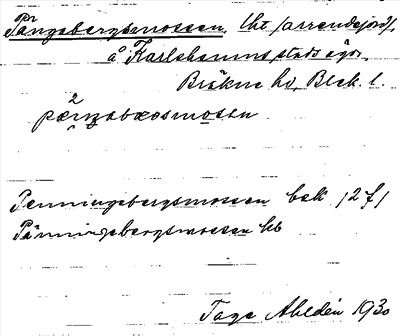 Pängabergsmossen, lht (arrendejord),
å Karlshamns stads ägor,
Bräkne hd, Blek. l.
pæŋabæʀsmosen
Penningabergsmossen bek (2 f)
Pänningabergsmossen kb
Tage Ahldén 1930